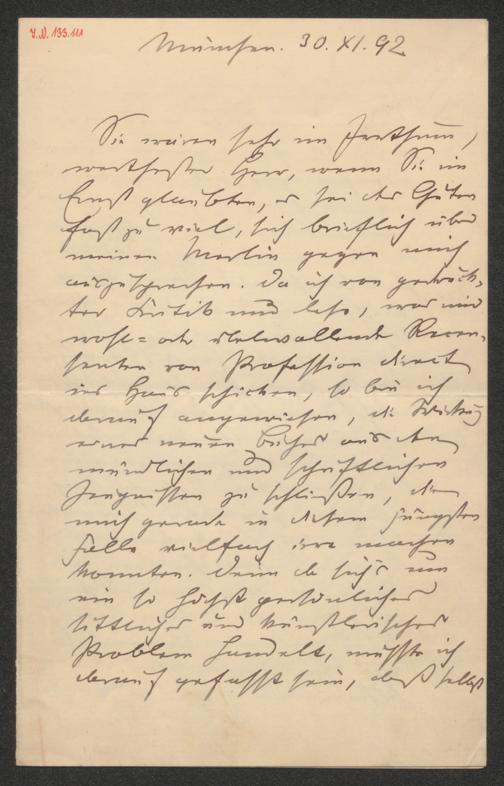 I.N. 133.111
München. 30. XI. 92
Sie wären sehr im Irrthum,
werthester Herr, wenn Sie im
Ernst glaubten, es sei des Guten
fast zu viel, sich brieflich über
meinen Merlin gegen mich
auszusprechen. Da ich von gedruck-
ter Kritik nur lese, was mir
wohl= oder übelwollende Recen-
senten von Profession direct
ins Haus schicken, so bin ich
darauf angewiesen, die Wirkung
eines neuen Buches aus den
mündlichen und schriftlichen
Zeugnissen zu schließen, die
mich gerade in diesem jüngsten
Falle vielfach irre machen
konnten. Denn da sich's um
ein so höchst persönliches
sittliches und künstlerisches
Problem handelt, mußte ich
darauf gefaßt sein, daß selbst